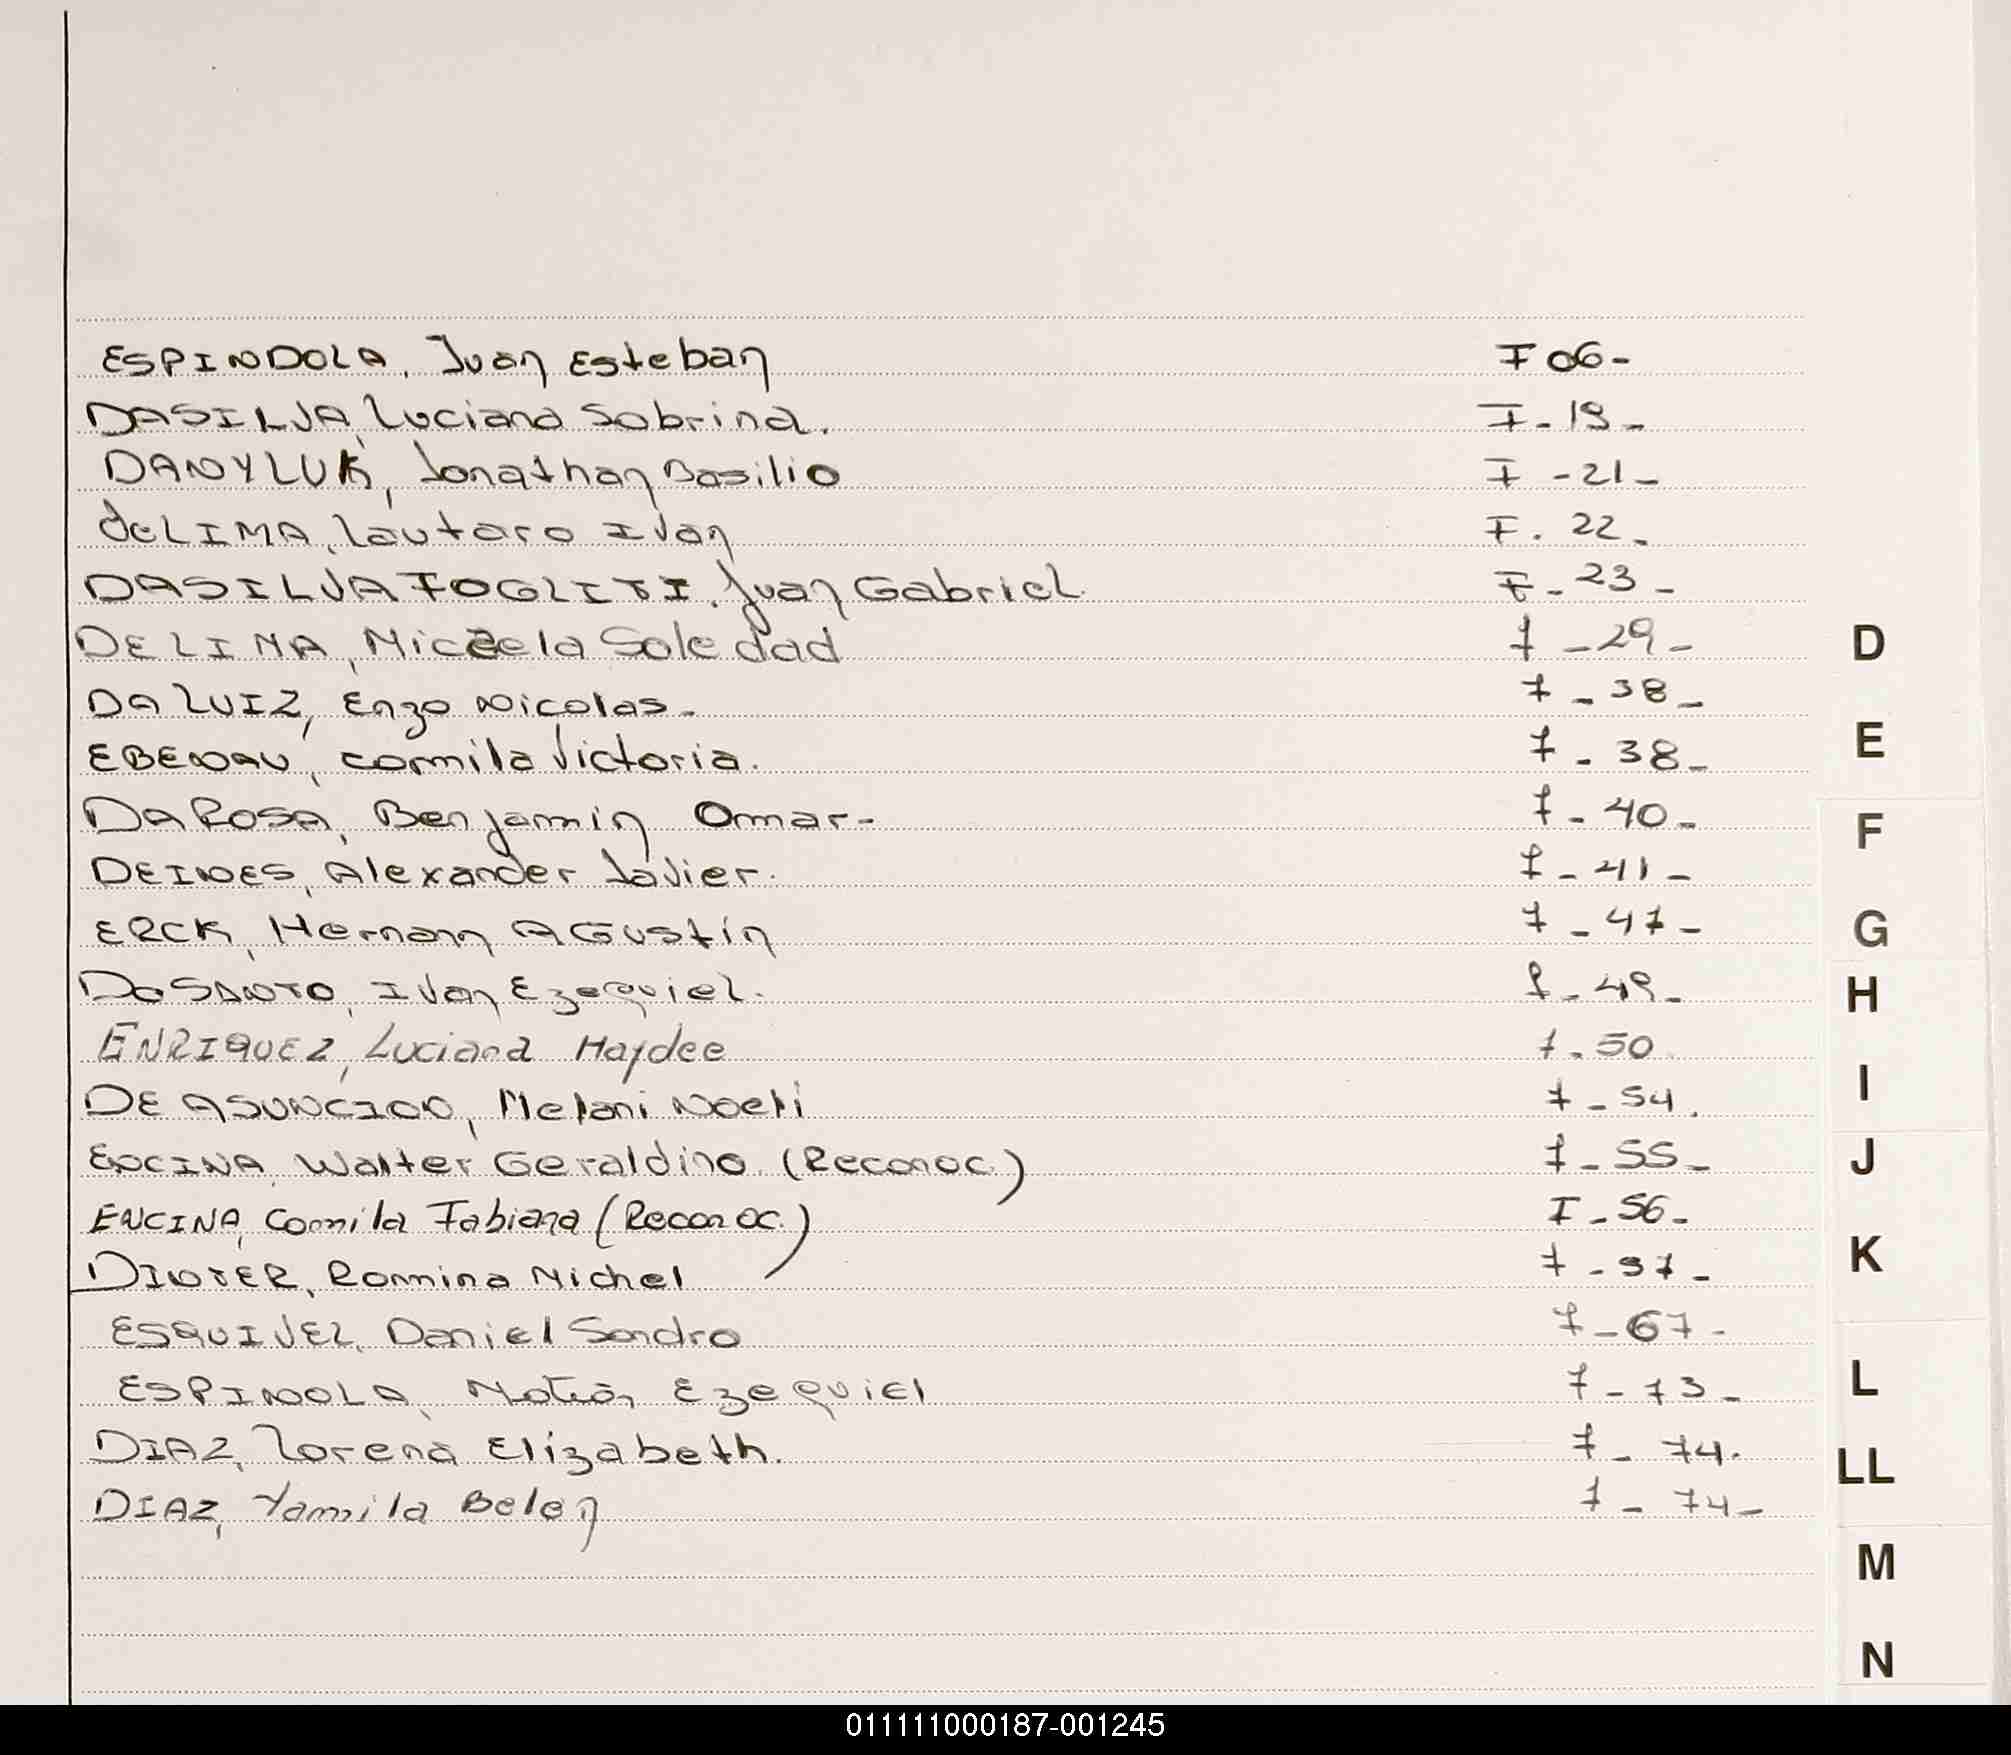 ESPINDOLA, Juan Esteban F 06-
DASILVA, Luciana Sabrina. F-19-
DANYLUK, Jonathan Basilio F-21-
deLIMA, Lautaro Ivan F. 22.
DASILVA FOGLITTI, Juan Gabriel F-23-
DELIMA, Micaela Soledad f-29-
DA LUIZ, Enzo Nicolas- f-38-
EBENAU, Camila Victoria. f-38-
DaROSA, Benjamin Omar- f-40-
DEINES, Alexander Javier. f-41-
ERCK, Hernan AGUstín f-47-
DoSANTO, Ivan Ezequiel. f-49-
ENRIQUEZ, Luciana Haydee f.50
DE ASUNCION, Melani Noeli f-54.
ENCINA, Walter Geraldino (Reconoc.) f-55-
ENCINA, Camila Fabiana (Reconoc.) F-56-
DINTER, Romina Michel f-57-
ESQUIVEL, Daniel Sandro f-67-
ESPINDOLA, Matías Ezequiel f-73-
DIAZ, Lorena Elizabeth. f-74.
DIAZ, Yamila Belen f-74-
D
E
F
G
H
I
J
K
L
LL
M
N
011111000187-001245